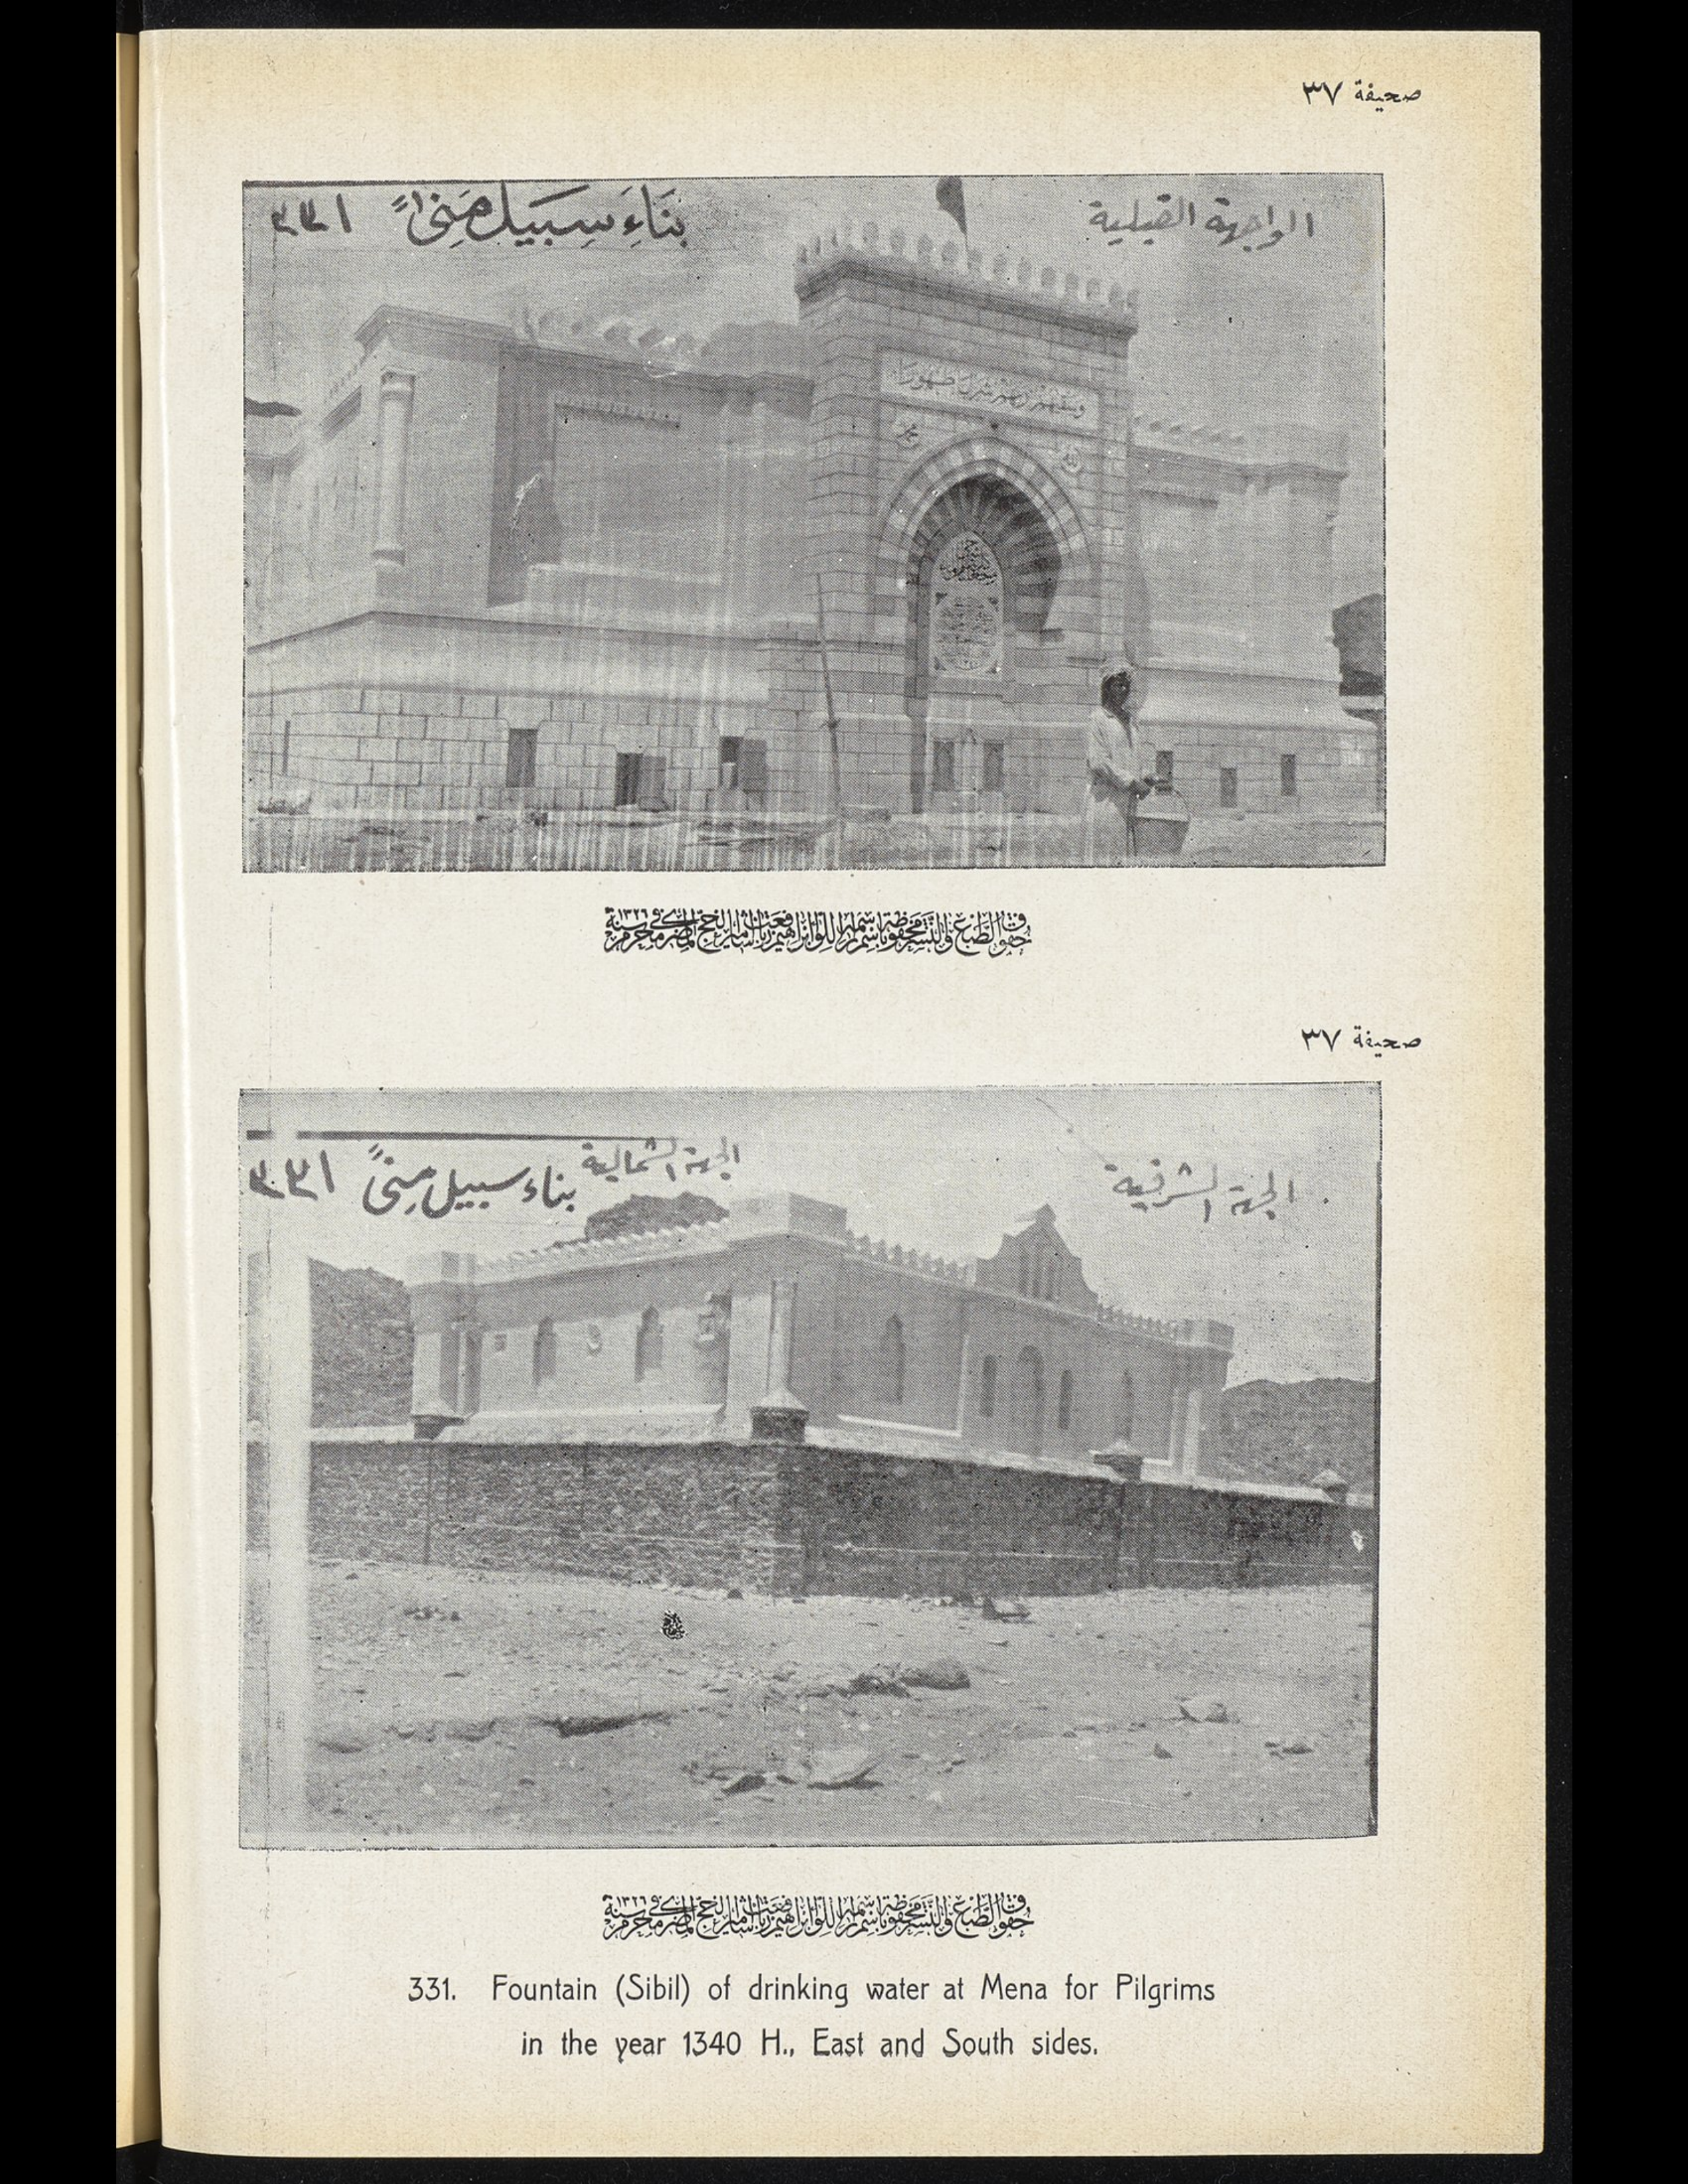 صحيفة ٣٧
الواجهة القبلية
بَنَاءَ سِبَيل مِنىً ٣٣١
وسقاهم ربهم شرابا طهورا
الله
محمد
حقوق الطبع والنشر محفوظة باسم أمير اللواء إبراهيم رفعت باشا أمير الحج المصري في محرم سنة ١٣٢٦
صحيفة ٣٧
الجهة الشرقية
الجهة الشمالية
بناء سبيل مِنىً ٣٣١
حقوق الطبع والنشر محفوظة باسم أمير اللواء إبراهيم رفعت باشا أمير الحج المصري في محرم سنة ١٣٢٦
331. Fountain (Sibil) of drinking water at Mena for Pilgrims
in the year 1340 H., East and South sides.